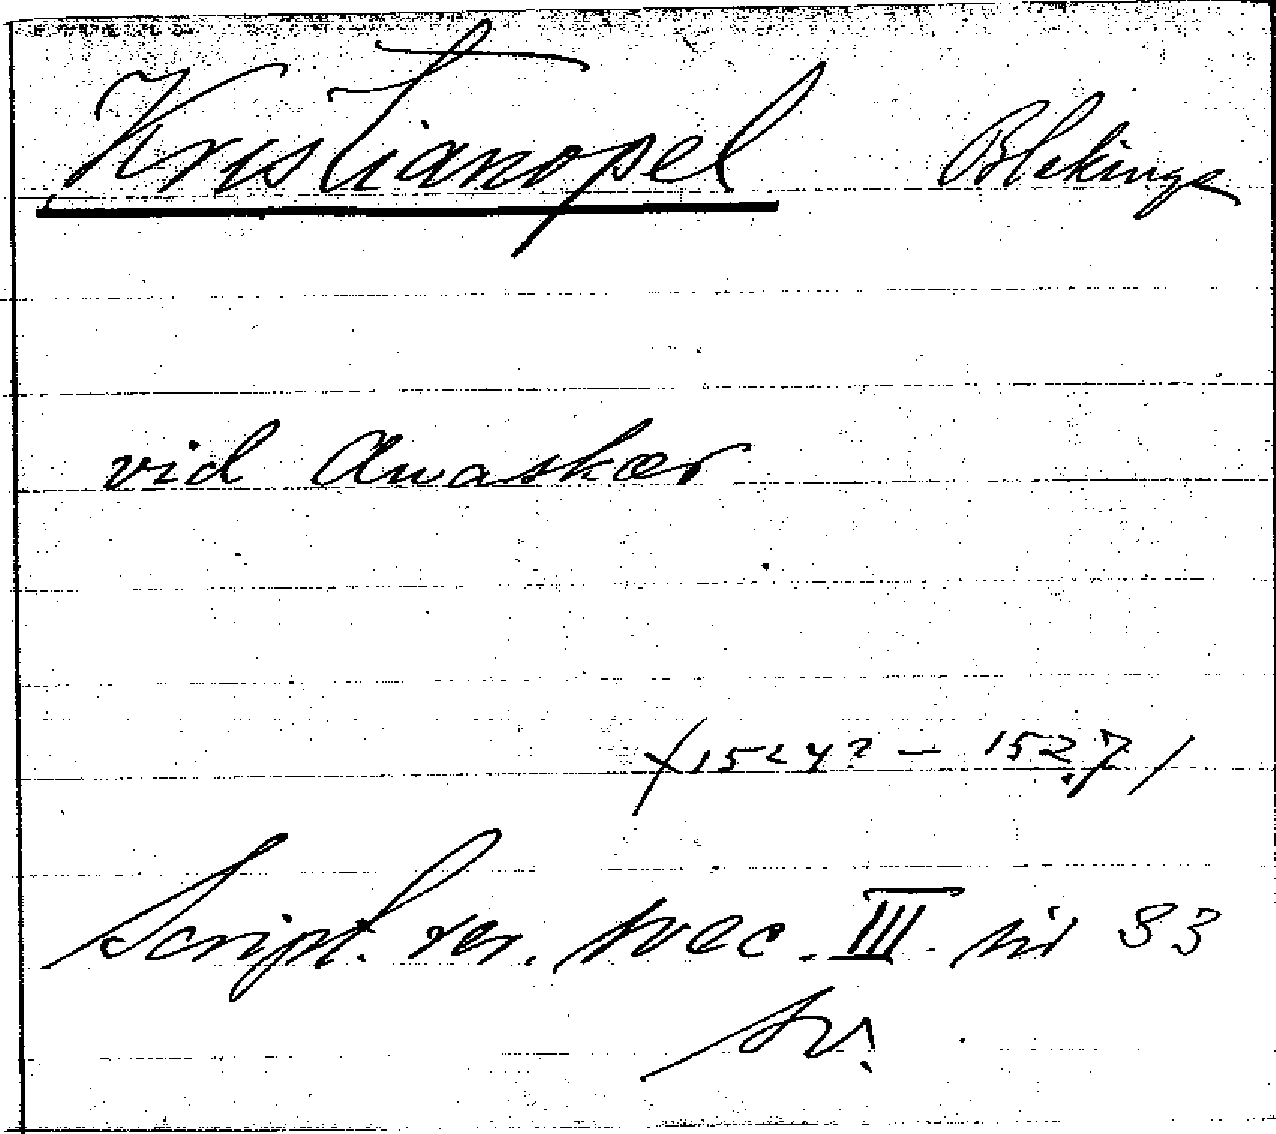 Kristianopel Blekinge
vid Awaskær
(1524? – 1527)
Script. rer. svec. III. sid 33
sv.